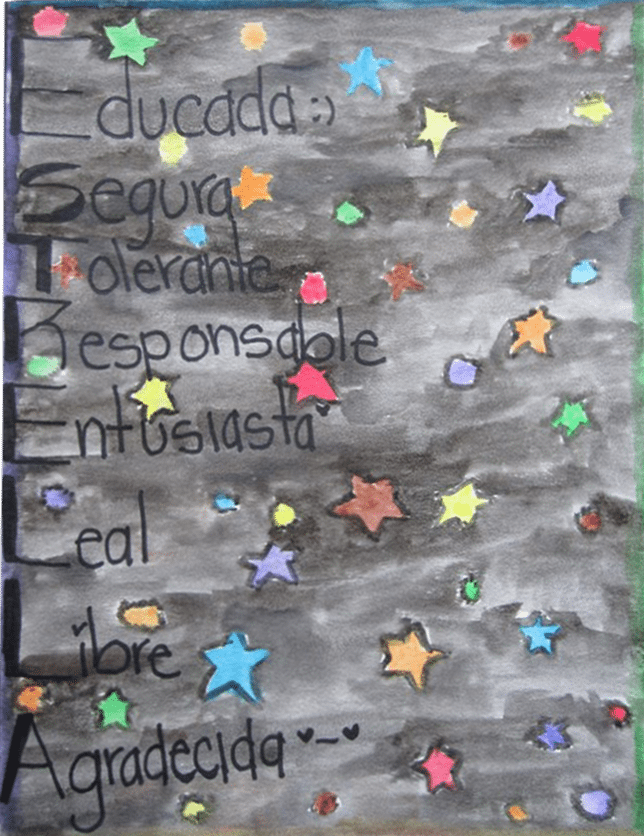 Educada :)
Segura
Tolerante
Responsable
Entusiasta
Leal
Libre
Agradecida ♥~♥